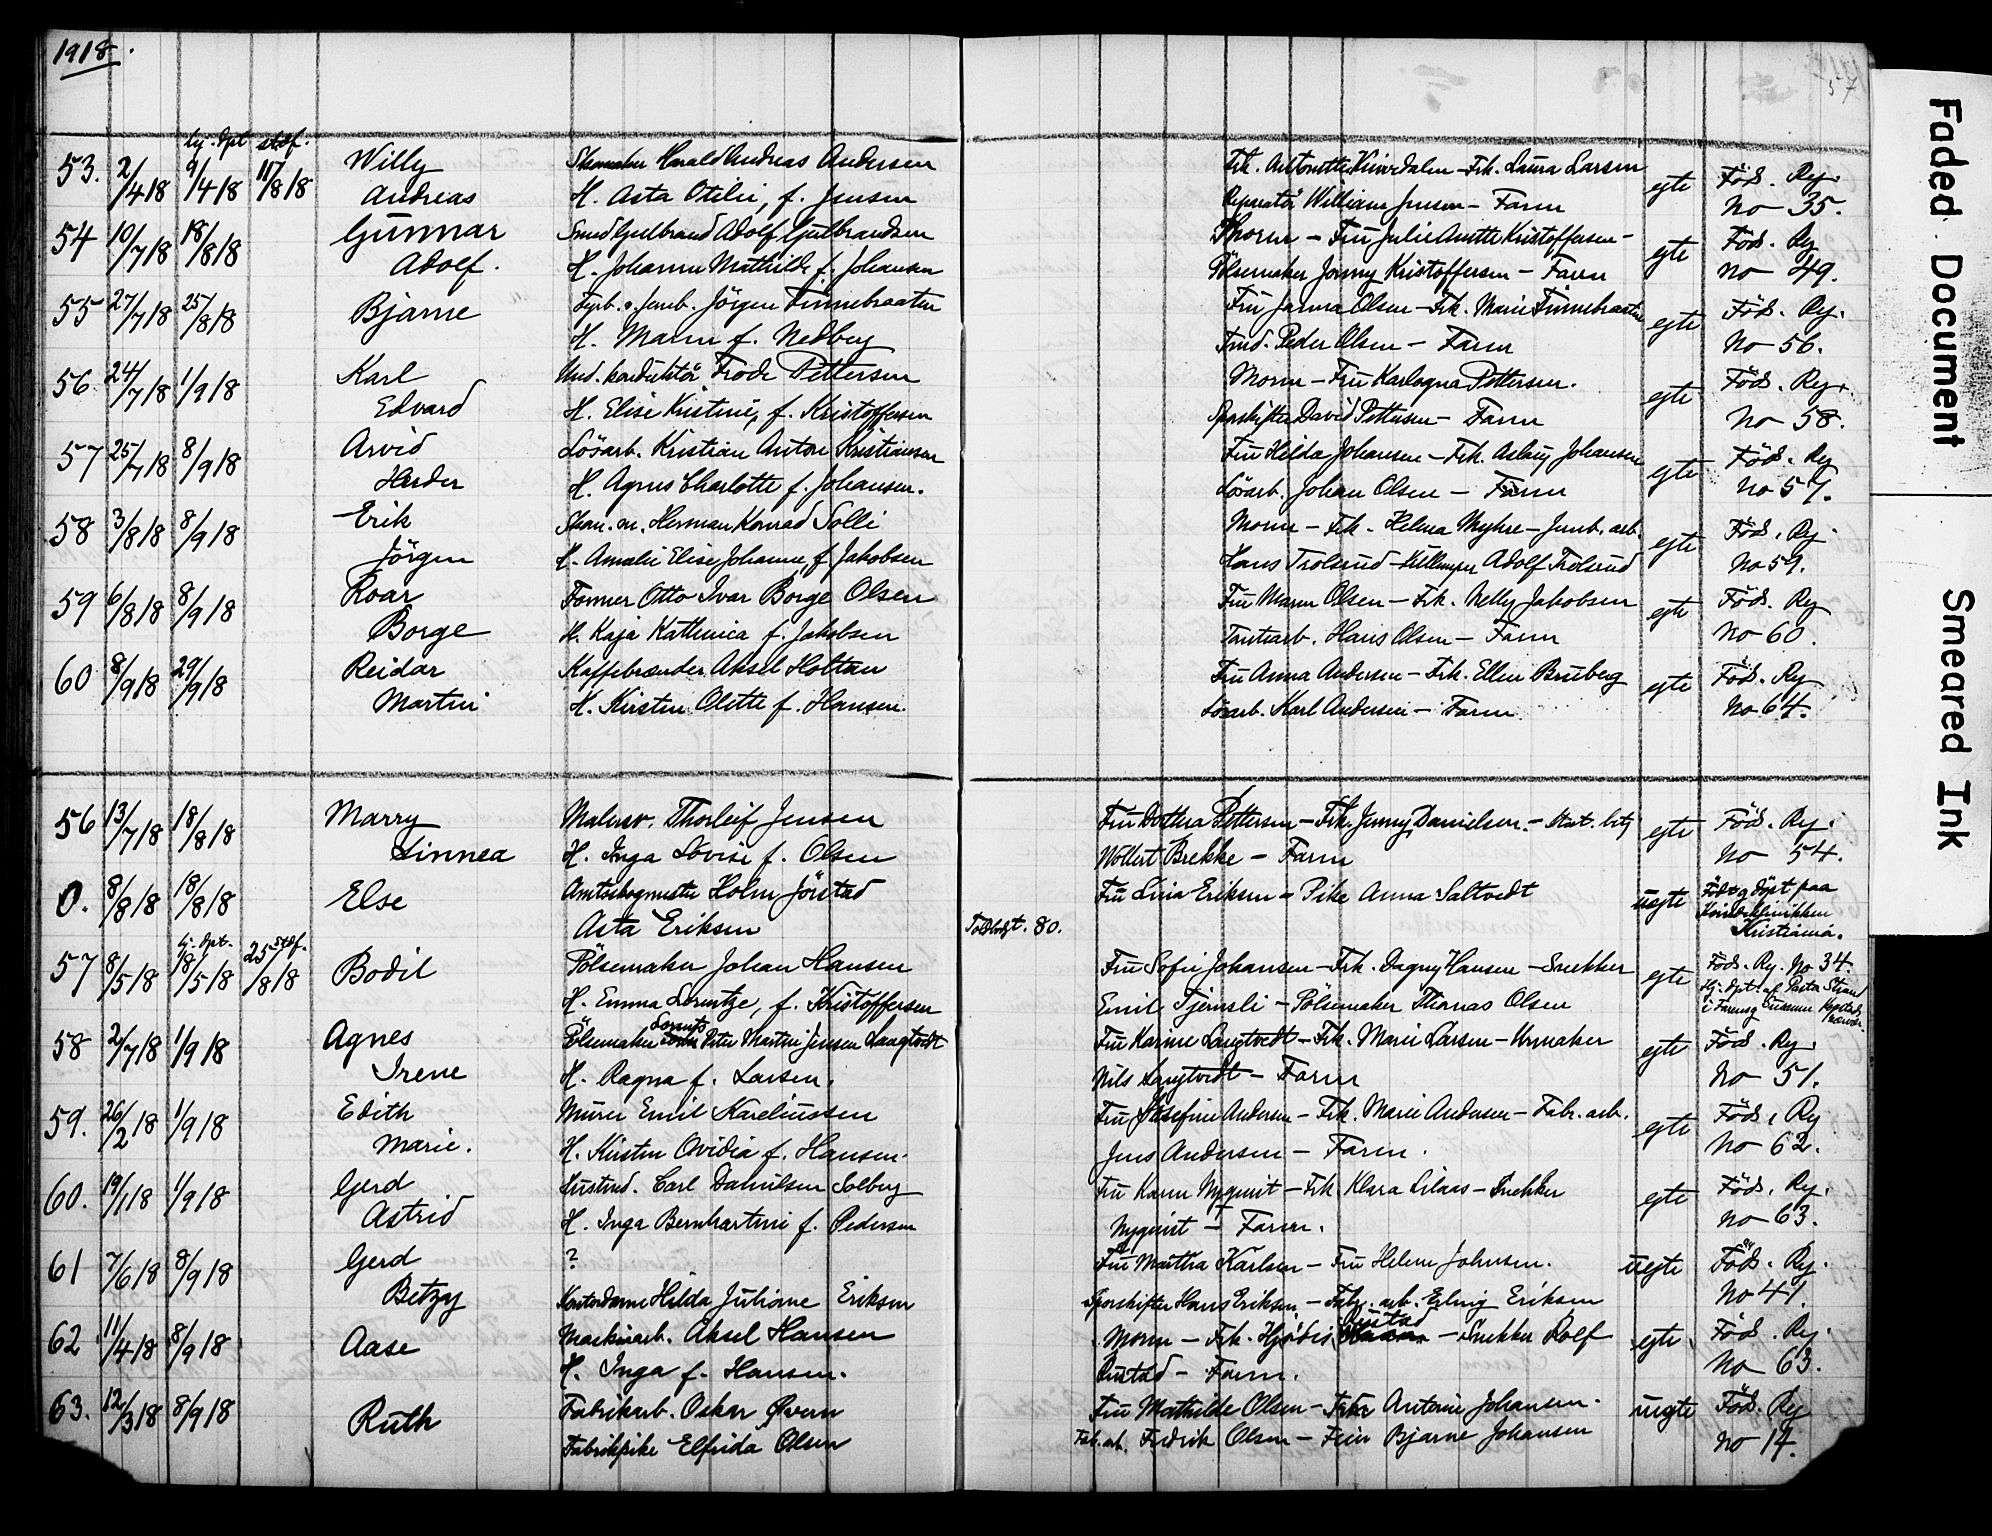 1918.
57
hj. dpt stdf.
53. 2/4 18 9/4 18 11/8 18 Willy Harald Andreas Andersen Frk. Antonette Kinnedalen - Frk. Laura Larsen egte Föd. Reg.
Andreas H. Asta Otilie, f. Jensen Reparatör William Jensen - Faren No 35.
54 10/7 18 18/8 18 Gunnar Smed Gulbrand Adolf Gulbrandsen - Fru Julie Anette Kristoffersen - egte Föd. Reg
Adolf. H. Johanne Mathilde f. Johansen Pölsemaker Jonny Kristoffersen - Faren No 49.
55 27/7 18 25/8 18 Bjarne Fyrb. v. Jernb. Jörgen Finnebraaten Fru Janna Olsen - Frk. Marie Finnebraaten egte Föd. Reg.
H. Maren f. Nedberg Peder Olsen - Faren No 56.
56. 24/7 18 1/9 18 Karl Und. konduktör Frode Pettersen Moren - Fru Karlagna Pettersen. egte Föd. Reg.
Edvard H. Elise Kristine, f. Kristoffersen Sporskifter David Pettersen - Faren No 58.
57 25/7 18 8/9 18 Arvid Lösarb. Kristian Anton Kristiansen Fru Hilda Johansen - Frk. Aslaug Johansen egte Föd. Reg
Herder H. Agnes Charlotte f. Johansen. Lösarb. Johan Olsen - Faren No 57.
58 3/8 18 8/9 18 Erik Skom. m. Herman Konrad Solli Moren - Frk. Helma Myhre - Jernb. arb. egte Föd. Reg.
Jörgen H. Amalie Elise Johanne, f. Jakobsen Hans Trolsrud - Adolf Trolsrud No 59.
59 6/8 18 8/9 18 Roar Former Otto Ivar Borge Olsen Fru Maren Olsen - Frk. Nelly Jakobsen egte Föd. Reg
Borge H. Kaja Kathinca f. Jakobsen Hans Olsen - Faren No 60.
60 8/9 18 29/9 18 Reidar Kaffebrænder Aksel Holtan Fru Anna Andersen - Frk. Ellen Bruberg egte Föd. Reg
Martin H. Kirsten Olette f. Hansen. Lösarb. Karl Andersen - Faren No 64.
56 13/7 18 18/8 18 Marry Malersv. Thorleif Jensen Fru Dothea Pettersen - Frk. Jenny Danielsen. - Stat. betj egte Föd. Reg.
Linnea H. Inga Lovise f. Olsen Wollert Brekke - Faren No 54.
0. 8/8 18 18/8 18 Else Amtsbogmester Holm Jörstad Fru Lina Eriksen - Pike Anna Saltvedt uegte Född og döpt paa
Asta Eriksen Toldbodgt. 80. Kvindeklinikken
Kristiania.
hj. dpt. stdf.
57 8/5 18 18/5 18 25/8 18 Bodil Pölsemaker Johan Hansen Fru Sofie Johansen - Frk. Dagny Hansen - Snekker egte Föd. Reg. No 34.
H. Emma Lorentze, f. Kristoffersen Emil Tjernsli - Pölsemaker Thomas Olsen Hj. dpt. af Pastor Strand
58 2/7 18 1/9 18 Agnes Pölsemaker Lorents Peter Martin Jensen Langtvedt Fru Karine Langtvedt - Frk. Marie Larsen - Urmaker egte Föd. Reg.
Irene H. Ragna f. Larsen. Nils Langtvedt - Faren No 51.
59. 26/2 18 1/9 18 Edith Murer Emil Kareliussen Fru Josefine Andersen - Frk. Marie Andersen - Fabr. arb. egte Föd. Reg
Marie. H. Kirsten Ovidia f. Hansen. Jens Andersen - Faren. No 62.
60. 19/1 18 1/9 18 Gerd Carl Danielsen Solberg Fru Karen Nyquist - Frk Klara Lilaas - Snekker egte Föd. Reg.
Astrid H. Inga Bernhartine f. Pedersen Nyquist - Faren. No 63.
61 7/6 18 8/9 18 Gerd ? Fru Martha Karlsen - Fru Helene Johnsen. uegte Föd. Reg.
Betzy Kontordame Hilda Juliane Eriksen Sporskifter Hans Eriksen - Fabr. arb. Erling Eriksen No 41.
62 11/4 18 8/9 18 Aase Maskinarb. Aksel Hansen Moren - Frk. Hjördis Rustad - Snekker Rolf egte Föd. Reg.
H. Inga f. Hansen. Rustad - Faren. No 63.
63. 12/3 18 8/9 18 Ruth Fabrikarb. Oskar Övern Fru Mathilde Olsen - Antonie Johansen. uegte Föd. Reg
Fabrikpike Elfrida Olsen Fab. arb. Fredrik Olsen - Bjarne Johansen No 14.
Faded Document
Smeared Ink